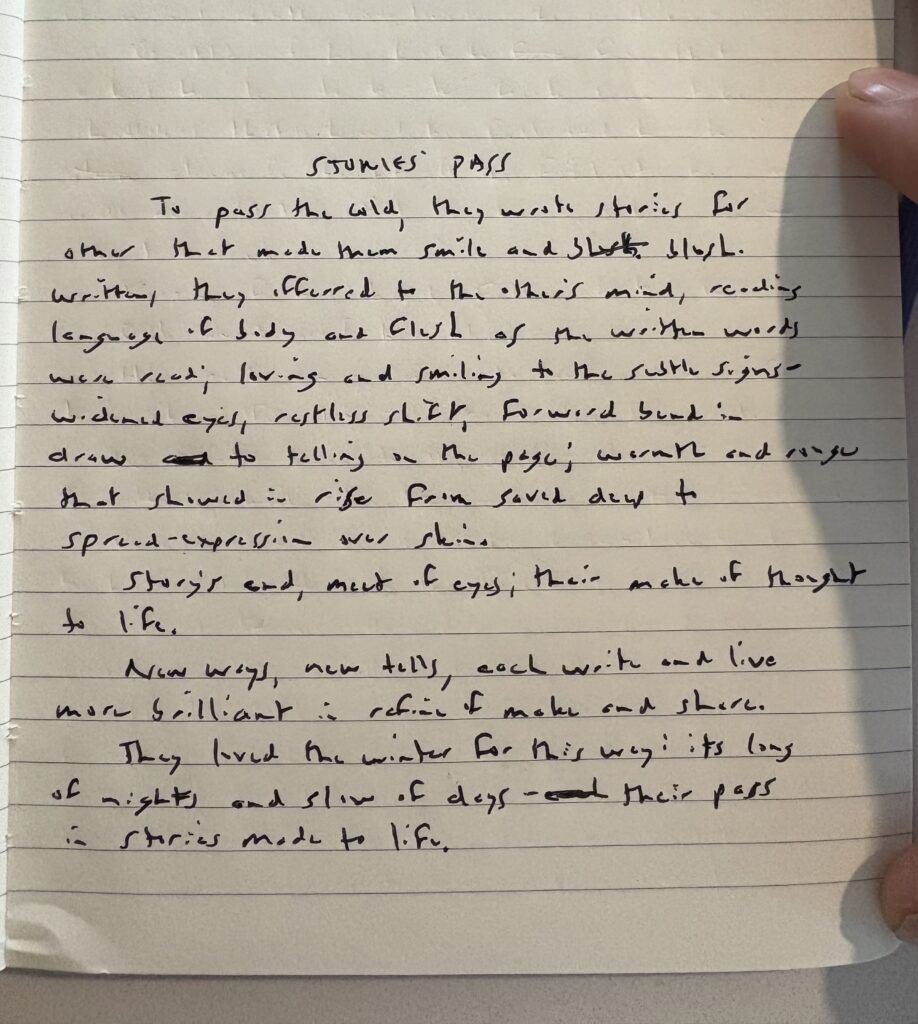 STORIES' PASS
To pass the cold, they wrote stories for
other that made them smile and blush.
written, they offerred to the other's mind, reading
language of body and flesh as the written words
were read; loving and smiling to the subtle signs-
widened eyes, restless shift, forward bend in
draw to telling on the page; warmth and rouge
that showed in rise from saved deep to
spread-expression over skin.
Story's end, meet of eyes; their make of thought
to life.
New ways, new tells, each write and live
more brilliant in refine of make and share.
They loved the winter for this way: its long
of nights and slow of days - their pass
in stories made to life.